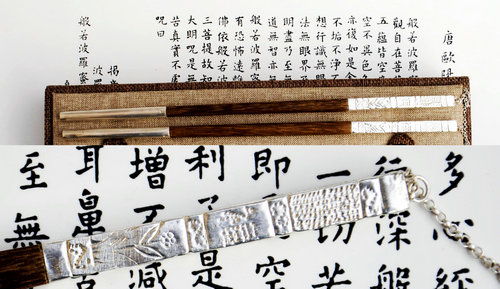 唐歐陽
般若波羅
觀自在菩
五蘊皆空
空不異色
亦復如是
不垢不淨
想行識無
法無眼界
明盡乃至
道無智亦
般若波羅蜜
有恐怖遠
佛依般若
三菩提故知
大明呪是無
苦真實不虛
呪曰
揭
波羅
般若波羅蜜
多心經
行深般
一切苦
即空
利子是
增不減
耳鼻
至無